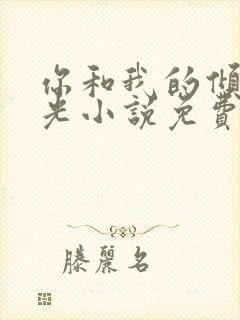 你和我的傾
光小說免費
滕麗名